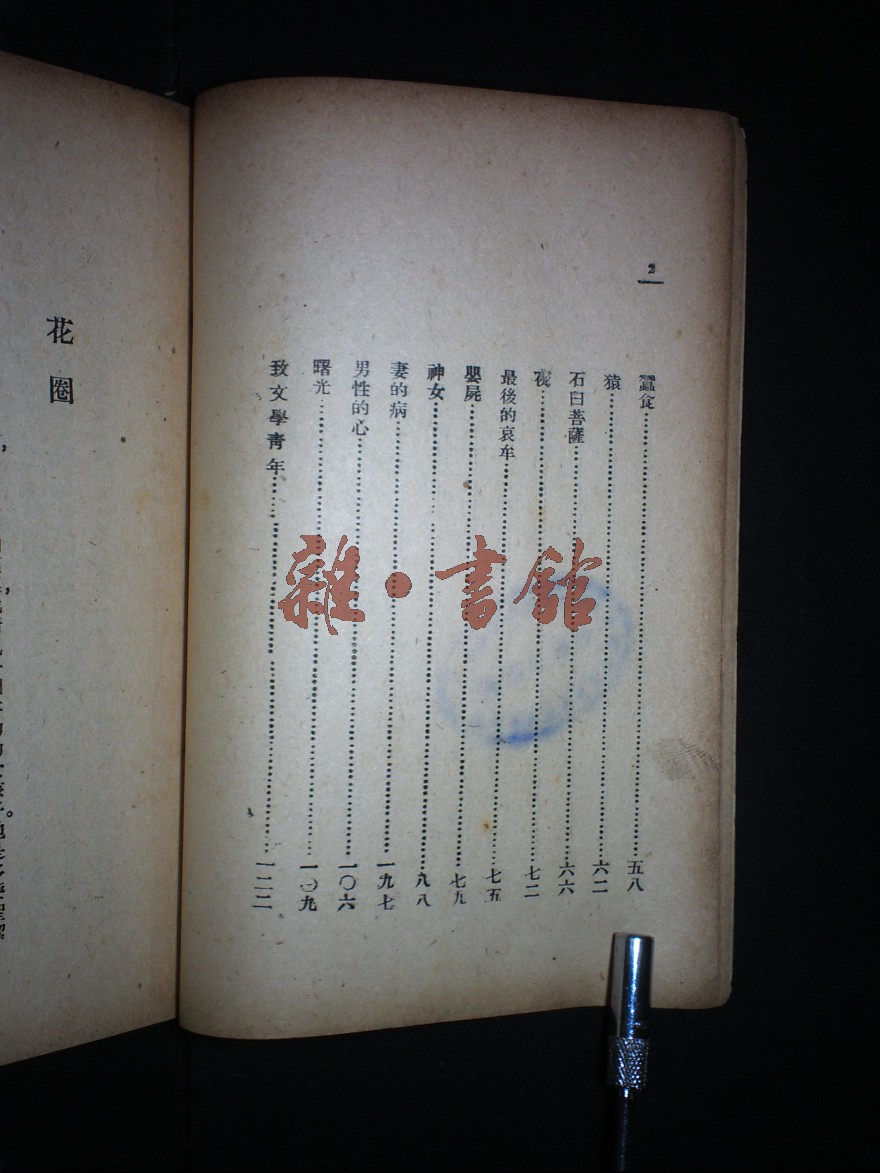 2
蠶食……五八
猿……六二
石臼菩薩……六六
夜……七二
最後的哀牟……七五
嬰屍……七九
神女……八八
妻的病……一九七
男性的心……一〇六
曙光……一〇九
致文學靑年……一二二
雜·書館
花圈